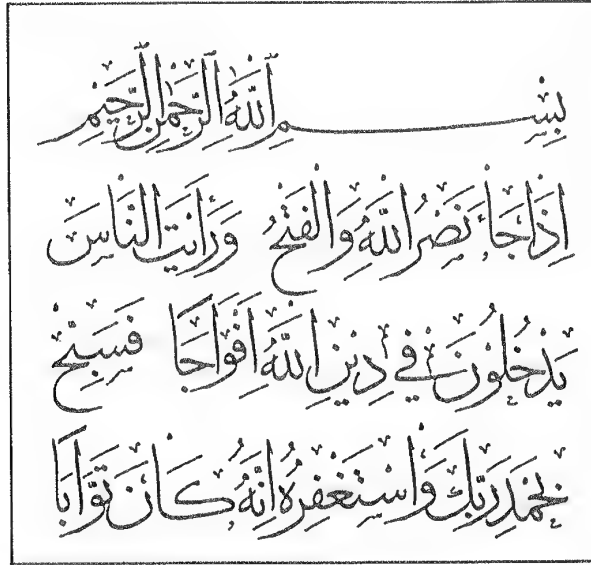 بِسْمِ اللَّهِ الرَّحْمٰنِ الرَّحِيْمِ
اِذَا جَآءَ نَصْرُ اللَّهِ وَالْفَتْحُ وَرَاَيْتَ النَّاسَ
يَدْخُلُوْنَ فِيْ دِيْنِ اللَّهِ اَفْوَاجًا فَسَبِّحْ
بِحَمْدِ رَبِّكَ وَاسْتَغْفِرْهُ اِنَّهُ كَانَ تَوَّابًا